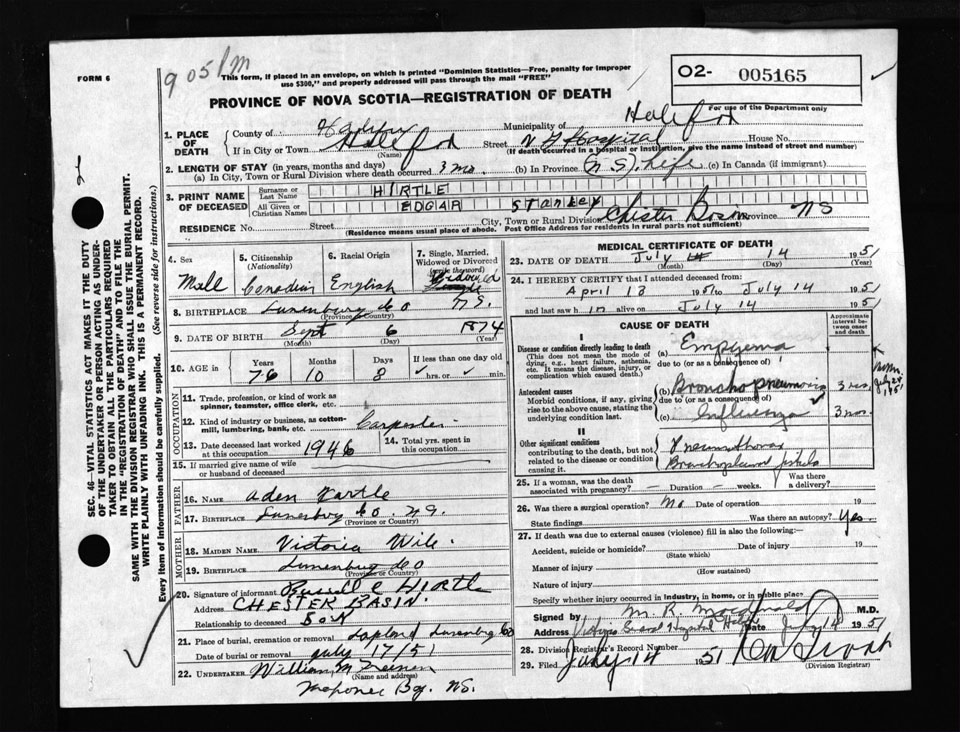 FORM 6
905/M
This form, if placed in an envelope, on which is printed "Dominion Statistics—Free, penalty for improper
use $300," and properly addressed will pass through the mail "FREE"
O2- 005165
For use of the Department only
PROVINCE OF NOVA SCOTIA—REGISTRATION OF DEATH
1. PLACE OF DEATH
County of Halifax Municipality of Halifax
If in City or Town Halifax (Name) Street V G Hospital House No.
(If death occurred in a hospital or institution, give the name instead of street and number)
2. LENGTH OF STAY (in years, months and days)
(a) In City, Town or Rural Division where death occurred 3 mo. (b) In Province (N.S.) Life (c) In Canada (if immigrant)
3. PRINT NAME OF DECEASED
Surname or Last Name HIRTLE
All Given or Christian Names EDGAR STANLEY
RESIDENCE No. Street City, Town or Rural Division Chester Basin Province NS
(Residence means usual place of abode. Post Office Address for residents in rural parts not sufficient)
4. Sex
Male
5. Citizenship (Nationality)
Canadian
6. Racial Origin
English
7. Single, Married, Widowed or Divorced (write the word)
Widowed
8. BIRTHPLACE Lunenburg Co N.S.
(Province or Country)
9. DATE OF BIRTH Sept 6 1874
(Month) (Day) (Year)
10. AGE in Years 76 Months 10 Days 8 If less than one day old hrs. or min.
OCCUPATION
11. Trade, profession, or kind of work as spinner, teamster, office clerk, etc.
12. Kind of industry or business, as cotton-mill, lumbering, bank, etc. Carpenter
13. Date deceased last worked at this occupation 1946
14. Total yrs. spent in this occupation
15. If married give name of wife or husband of deceased
FATHER
16. NAME Aden Hartle
17. BIRTHPLACE Lunenburg Co. N.S.
(Province or Country)
MOTHER
18. MAIDEN NAME Victoria Wile
19. BIRTHPLACE Lunenburg Co
(Province or Country)
20. Signature of informant Russell C Hirtle
Address CHESTER BASIN.
Relationship to deceased SON
21. Place of burial, cremation or removal Lapland Lunenburg Co
Date of burial or removal July 17/51
22. UNDERTAKER William M
(Name and Address)
Mahone Bay. NS.
MEDICAL CERTIFICATE OF DEATH
23. DATE OF DEATH July 14 1951
(Month) (Day) (Year)
24. I HEREBY CERTIFY that I attended deceased from:
April 13 1951 to July 14 1951
and last saw him alive on July 14 1951
CAUSE OF DEATH
Approximate interval between onset and death
I
Disease or condition directly leading to death
(This does not mean the mode of dying, e.g., heart failure, asthenia, etc. It means the disease, injury, or complication which caused death.)
(a) Empyema
due to (or as a consequence of)
Antecedent causes
Morbid conditions, if any, giving rise to the above cause, stating the underlying condition last.
(b) Bronchopneumonia 3 mos.
due to (or as a consequence of)
(c) Influenza 3 mos.
II
Other significant conditions contributing to the death, but not related to the disease or condition causing it.
Pneumothorax
Bronchopleural fistula
25. If a woman, was the death associated with pregnancy? – Duration – weeks. Was there a delivery?
26. Was there a surgical operation? No Date of operation 19
State findings Was there an autopsy? Yes.
27. If death was due to external causes (violence) fill in also the following:
Accident, suicide or homicide? Date of injury 19
(State which)
Manner of injury
(How sustained)
Nature of injury
Specify whether injury occurred in industry, in home, or in public place
Signed by M. R. Macdonald M.D.
Address Victoria General Hospital Halifax Date July 14 1951
28. Division Registrar's Record Number
29. Filed July 14 1951
(Division Registrar)
SEC. 46—VITAL STATISTICS ACT MAKES IT THE DUTY
OF THE UNDERTAKER OR PERSON ACTING AS UNDERTAKER TO OBTAIN ALL THE PARTICULARS REQUIRED
IN THE "REGISTRATION OF DEATH" AND TO FILE THE
SAME WITH THE DIVISION REGISTRAR WHO SHALL ISSUE THE BURIAL PERMIT.
WRITE PLAINLY WITH UNFADING INK. THIS IS A PERMANENT RECORD.
Every item of information should be carefully supplied. (See reverse side for instructions.)